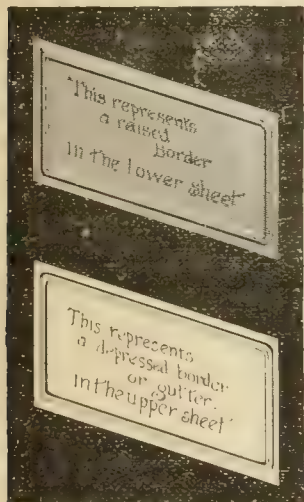 "This represents
a raised
Border
In the lower sheet"
This represents
a depressed border
or gutter.
In the upper sheet"